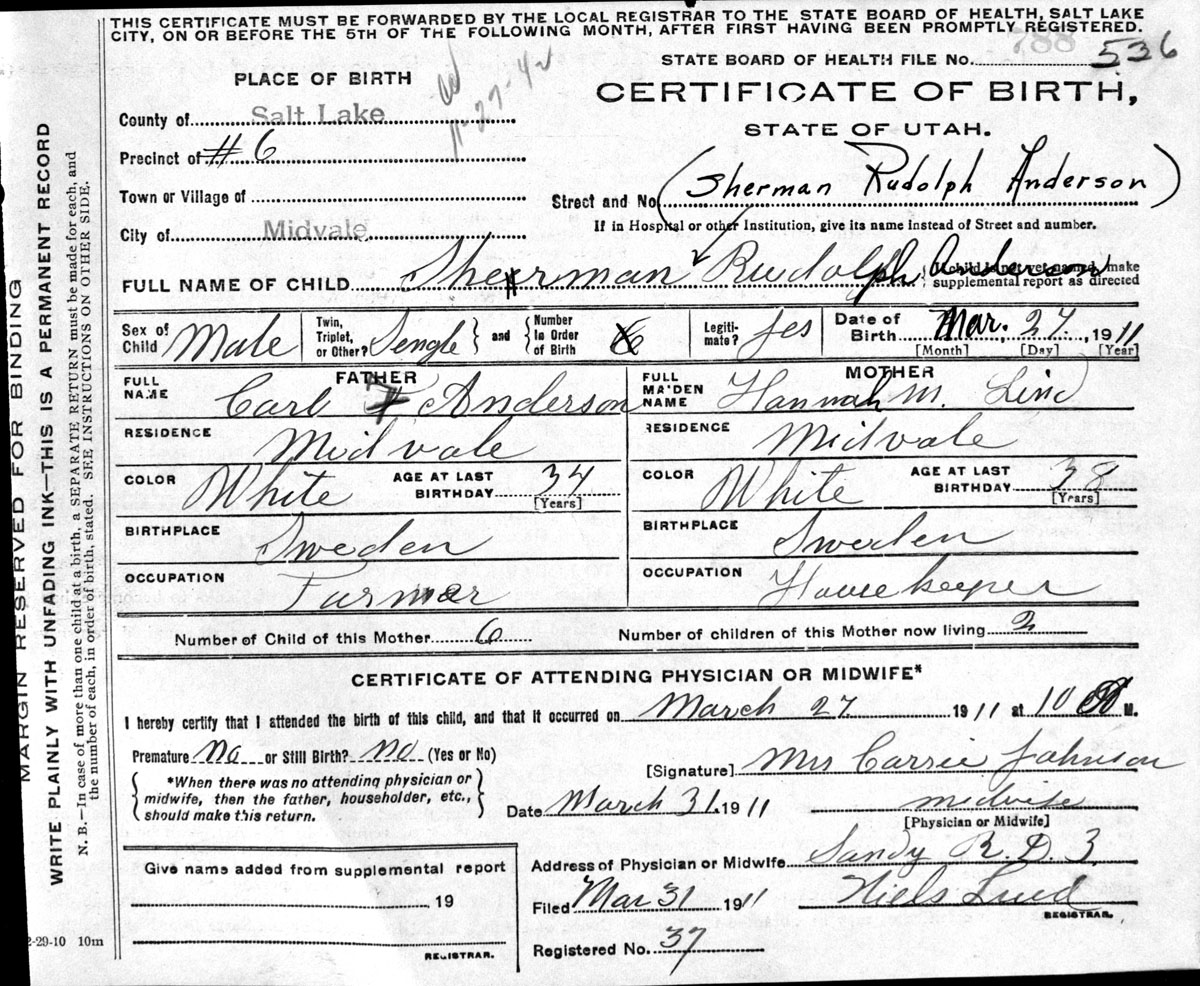 THIS CERTIFICATE MUST BE FORWARDED BY THE LOCAL REGISTRAR TO THE STATE BOARD OF HEALTH, SALT LAKE
CITY, ON OR BEFORE THE 5TH OF THE FOLLOWING MONTH, AFTER FIRST HAVING BEEN PROMPTLY REGISTERED.
788
STATE BOARD OF HEALTH FILE No. 536
PLACE OF BIRTH
11-27-42
CERTIFICATE OF BIRTH,
STATE OF UTAH.
County of Salt Lake
Precinct of #6
Town or Village of
City of Midvale
(Sherman Rudolph Anderson)
Street and No
If in Hospital or other Institution, give its name instead of Street and number.
FULL NAME OF CHILD Sherman Rudolph Anderson
If child is not yet named, make
supplemental report as directed
Sex of Child Male
Twin, Triplet, or Other? Sengle } and { Number in Order of Birth 6
Legiti-mate? yes
Date of Birth Mar. 27, 1911
[Month] [Day] [Year]
FATHER
FULL NAME Carl F Anderson
RESIDENCE Midvale
COLOR White AGE AT LAST BIRTHDAY 34 [Years]
BIRTHPLACE Sweden
OCCUPATION Farmer
MOTHER
FULL MAIDEN NAME Hannah M. Lind
RESIDENCE Midvale
COLOR White AGE AT LAST BIRTHDAY 38 [Years]
BIRTHPLACE Sweden
OCCUPATION House keeper
Number of Child of this Mother 6 Number of children of this Mother now living 2
CERTIFICATE OF ATTENDING PHYSICIAN OR MIDWIFE*
I hereby certify that I attended the birth of this child, and that it occurred on March 27. 1911 at 10 M.
Premature No or Still Birth? no (Yes or No)
{ *When there was no attending physician or
midwife, then the father, householder, etc.,
should make this return. }
[Signature] Mrs Carrie Johnson
Date March 31. 1911 midwife
[Physician or Midwife]
Give name added from supplemental report
19
REGISTRAR.
Address of Physician or Midwife Sandy R.D. 3
Filed Mar 31 1911 Niels Lind
REGISTRAR.
Registered No. 37
2-29-10 10m
MARGIN RESERVED FOR BINDING
WRITE PLAINLY WITH UNFADING INK—THIS IS A PERMANENT RECORD
N. B.—In case of more than one child at a birth, a SEPARATE RETURN must be made for each, and
the number of each, in order of birth, stated. SEE INSTRUCTIONS ON OTHER SIDE.